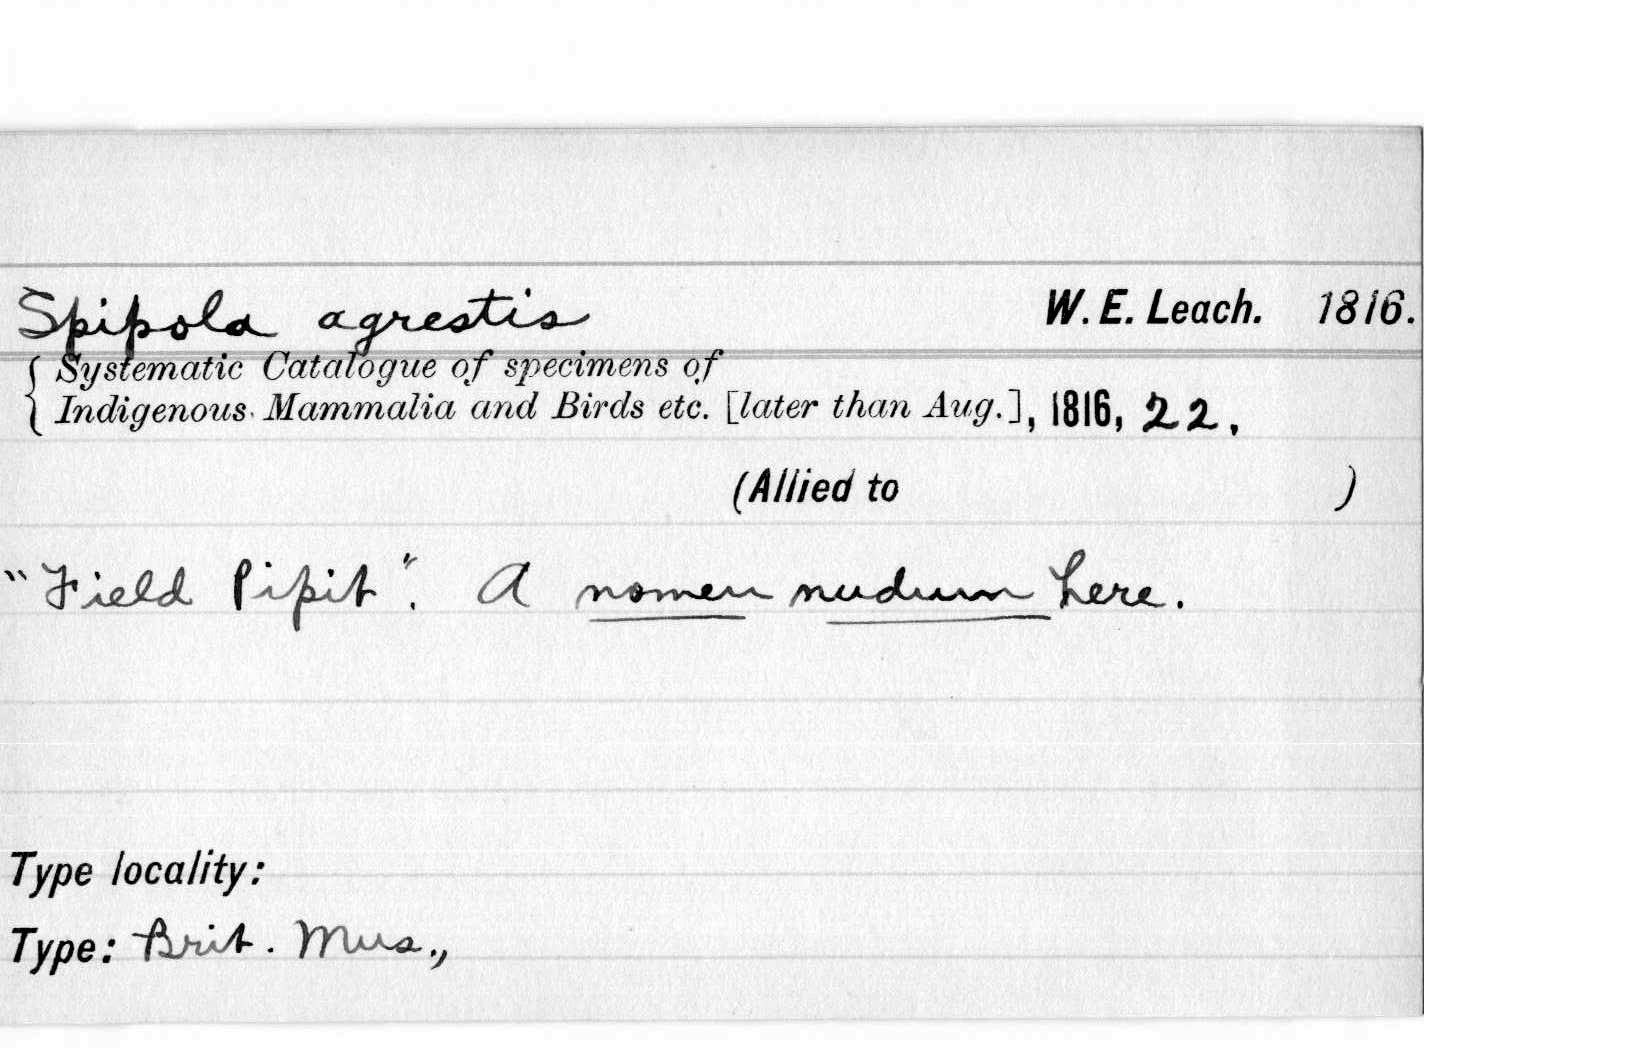 Spipola agrestis W. E. Leach. 1816.
{ Systematic Catalogue of specimens of
Indigenous Mammalia and Birds etc. [later than Aug.], 1816, 22.
(Allied to )
"Field Pipit". A nomen nudum here.
Type locality:
Type: Brit. Mus.,